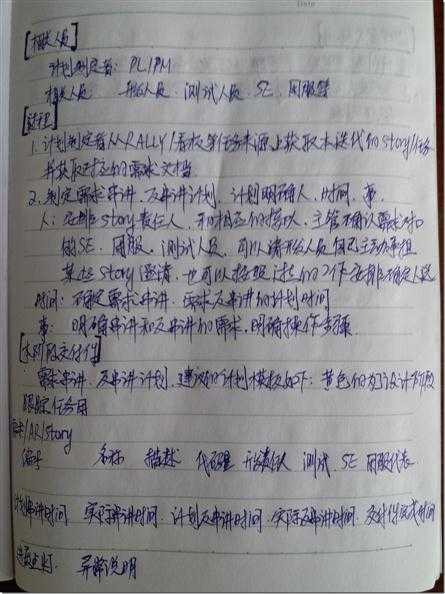 [相关人员]
计划制定者：PL/PM
相关人员 开发人员、测试人员、SE、周服等
[过程]
1. 计划制定者从RALLY/看板等任务来源上获取本迭代的story/任务
并获取对应的需求文档
2. 制定需求串讲、反串讲计划，计划明确人、时间、事
人：安排story责任人，和相应的团队、主管确认需求对口
的SE、周服、测试人员，可以请开发人员自己主动承担
某些story 澄清，也可以按照过去的工作安排确定人选
时间：确定需求串讲、需求反串讲的计划时间
事：明确串讲和反串讲的需求，明确操作步骤
[本阶段交付件]
需求串讲、反串讲计划，建议的计划模板如下：黄色的为设计阶段
跟踪任务用
需求/AR/Story
编号 名称 描述 代码量 开发责任人 测试 SE 周服代表
计划串讲时间 实际串讲时间 计划反串讲时间 实际反串讲时间 交付件完成时间
进度点灯 异常说明